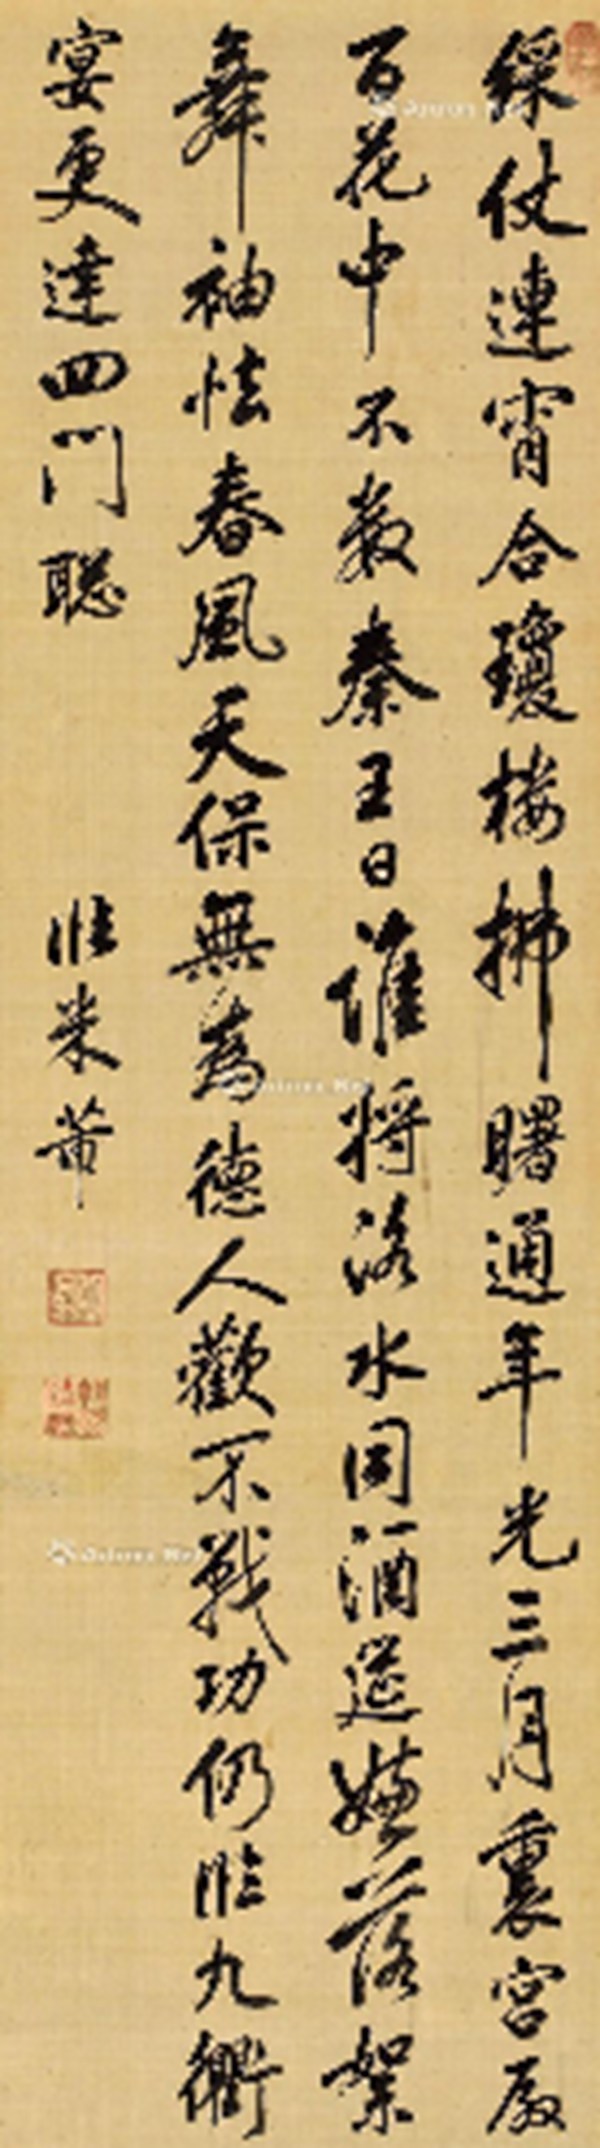 綵仗連宵合瓊楼拂曙通年光三月裏宮殿
百花中不数秦王日誰将洛水同酒筵嫌落絮
舞袖怯春風天保無為德人歡不戰功仍臨九衢
宴更達四門聡
臨米芾